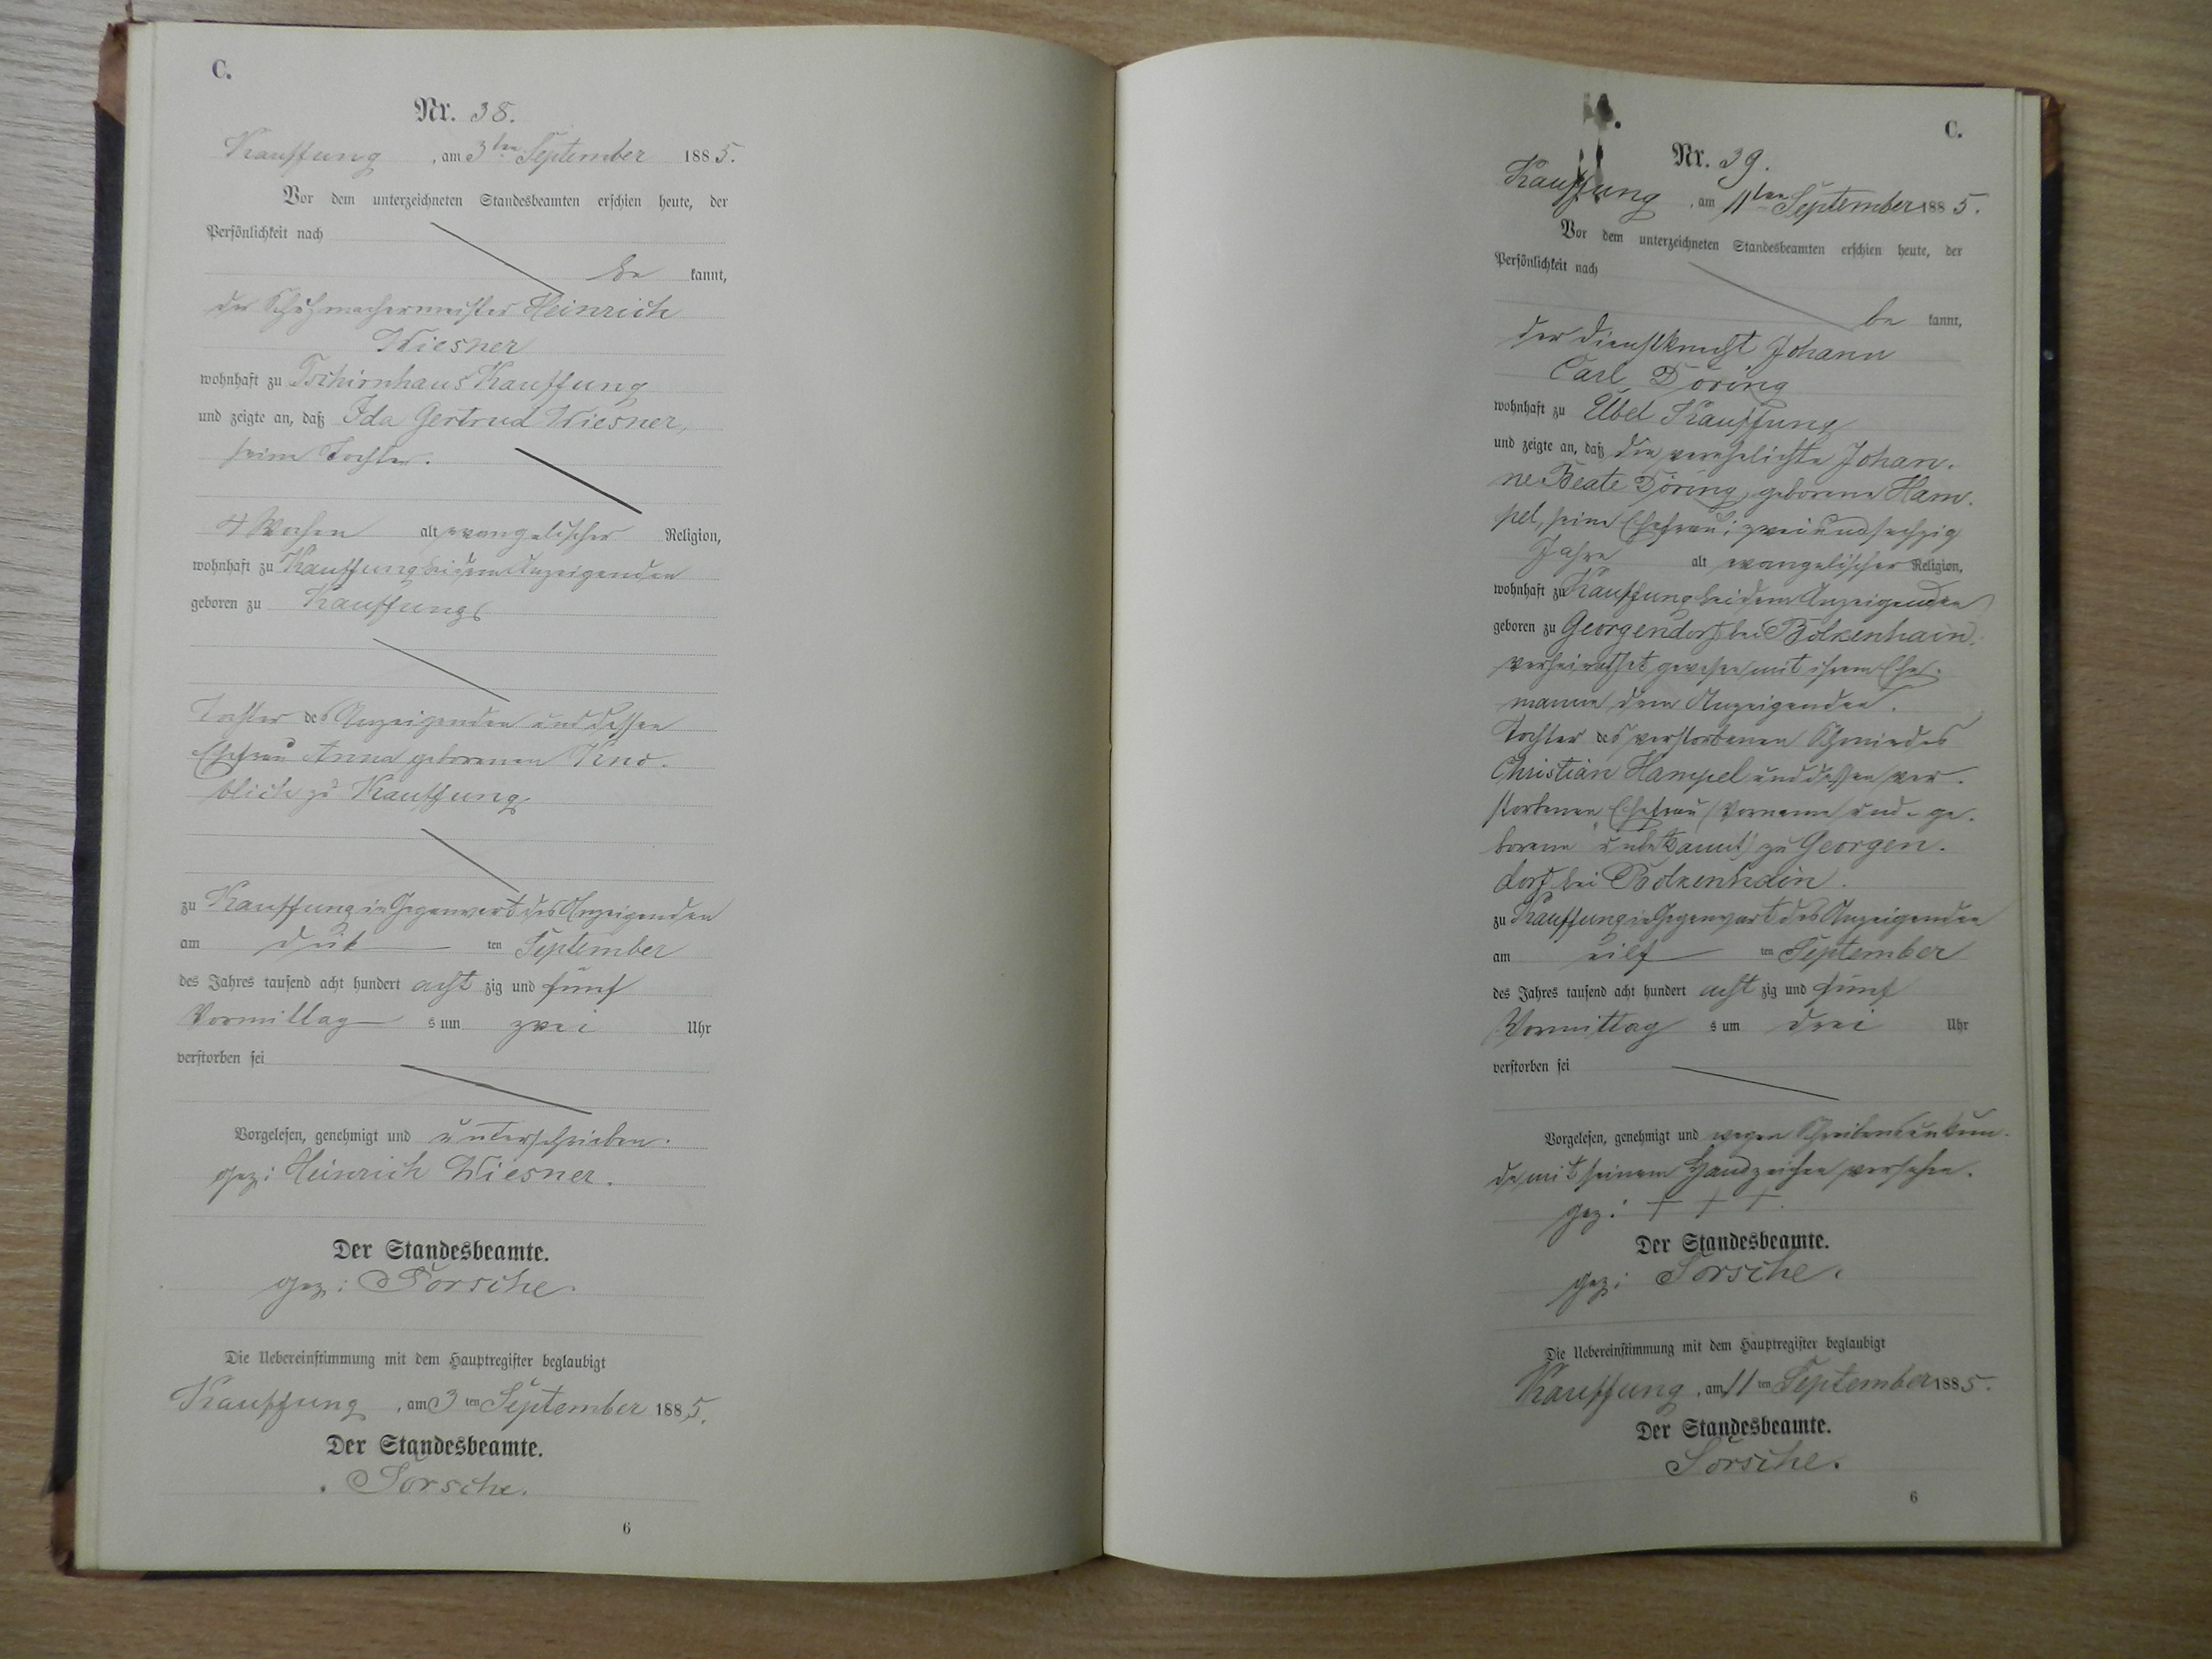 C.
Nr. 38.
Kauffung, am 3ten September 1885.
Vor dem unterzeichneten Standesbeamten erschien heute, der
Persönlichkeit nach
be kannt,
der Schuhmachermeister Heinrich
Wiesner
wohnhaft zu Tschirnhaus Kauffung
und zeigte an, daß Ida Gertrud Wiesner,
seine Tochter.
4 Wochen alt evangelischer Religion,
wohnhaft zu Kauffung bei dem Anzeigenden
geboren zu Kauffung
Tochter des Anzeigenden und dessen
Ehefrau Anna geborenen Kno-
blich zu Kauffung.
zu Kauffung in Gegenwart des Anzeigenden
am drit ten September
des Jahres tausend acht hundert acht zig und fünf
Vormittag s um zwei Uhr
verstorben sei
Vorgelesen, genehmigt und unterschrieben.
gez: Heinrich Wiesner.
Der Standesbeamte.
gez: Sorsche.
Die Uebereinstimmung mit dem Hauptregister beglaubigt
Kauffung, am 3 ten September 1885.
Der Standesbeamte.
Sorsche.
6
C.
Nr. 39.
Kauffung, am 11ten September 1885.
Vor dem unterzeichneten Standesbeamten erschien heute, der
Persönlichkeit nach
be kannt,
der Dienstknecht Johann
Carl Döring
wohnhaft zu Elbel Kauffung
und zeigte an, daß die verehelichte Johan-
ne Beate Döring, geborene Ham-
pel, seine Ehefrau; zweiundsechzig
Jahre alt evangelischer Religion,
wohnhaft zu Kauffung bei dem Anzeigenden
geboren zu Georgendorf bei Bolkenhain.
verheirathet gewesen mit ihrem Ehe-
manne dem Anzeigenden.
Tochter des verstorbenen Schmiedes
Christian Hampel und dessen ver-
storbenen Ehefrau (Vorname und ge-
borene unbekannt) zu Georgen-
dorf bei Bolkenhain.
zu Kauffung in Gegenwart des Anzeigenden
am eilf ten September
des Jahres tausend acht hundert acht zig und fünf
Vormittag s um drei Uhr
verstorben sei
Vorgelesen, genehmigt und wegen Schreibensunkun-
de mit seinem Handzeichen versehen.
gez: + + +.
Der Standesbeamte.
gez: Sorsche.
Die Uebereinstimmung mit dem Hauptregister beglaubigt
Kauffung, am 11 ten September 1885.
Der Standesbeamte.
Sorsche.
6